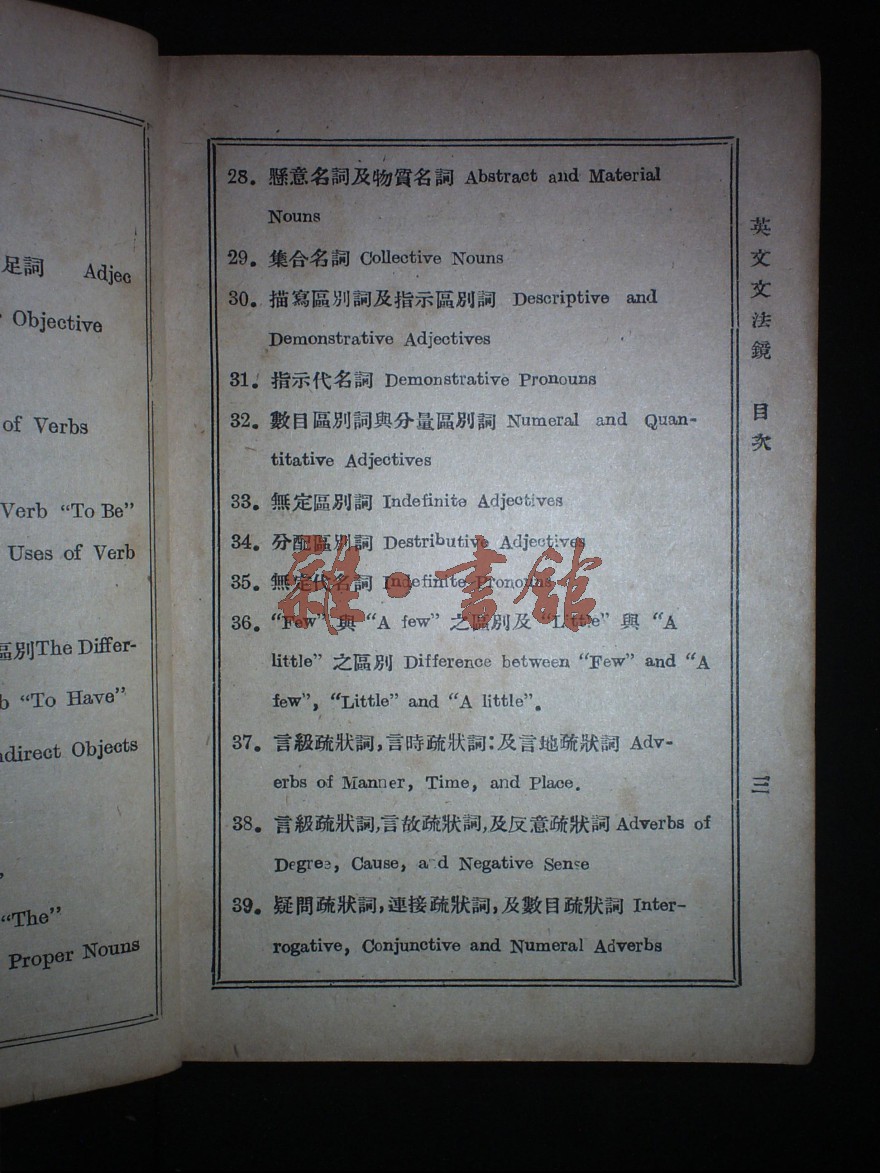 足詞 Adjec
Objective
of Verbs
Verb “To Be”
Uses of Verb
區別The Differ-
“To Have”
ndirect Objects
“The”
Proper Nouns
28. 懸意名詞及物質名詞 Abstract and Material
Nouns
29. 集合名詞 Collective Nouns
30. 描寫區別詞及指示區別詞 Descriptive and
Demonstrative Adjectives
31. 指示代名詞 Demonstrative Pronouns
32. 數目區別詞與分量區別詞 Numeral and Quan-
titative Adjectives
33. 無定區別詞 Indefinite Adjectives
34. 分配區別詞 Destributive Adjectives
35. 無定代名詞 Indefinite Pronouns
36. “Few” 與 “A few” 之區別及 “Little” 與 “A
little” 之區別 Difference between “Few” and “A
few”, “Little” and “A little”.
37. 言級疏狀詞,言時疏狀詞:及言地疏狀詞 Adv-
erbs of Manner, Time, and Place.
38. 言級疏狀詞,言故疏狀詞,及反意疏狀詞 Adverbs of
Degree, Cause, and Negative Sense
39. 疑問疏狀詞,連接疏狀詞,及數目疏狀詞 Inter-
rogative, Conjunctive and Numeral Adverbs
英文文法鏡 目次
三
雜·書館